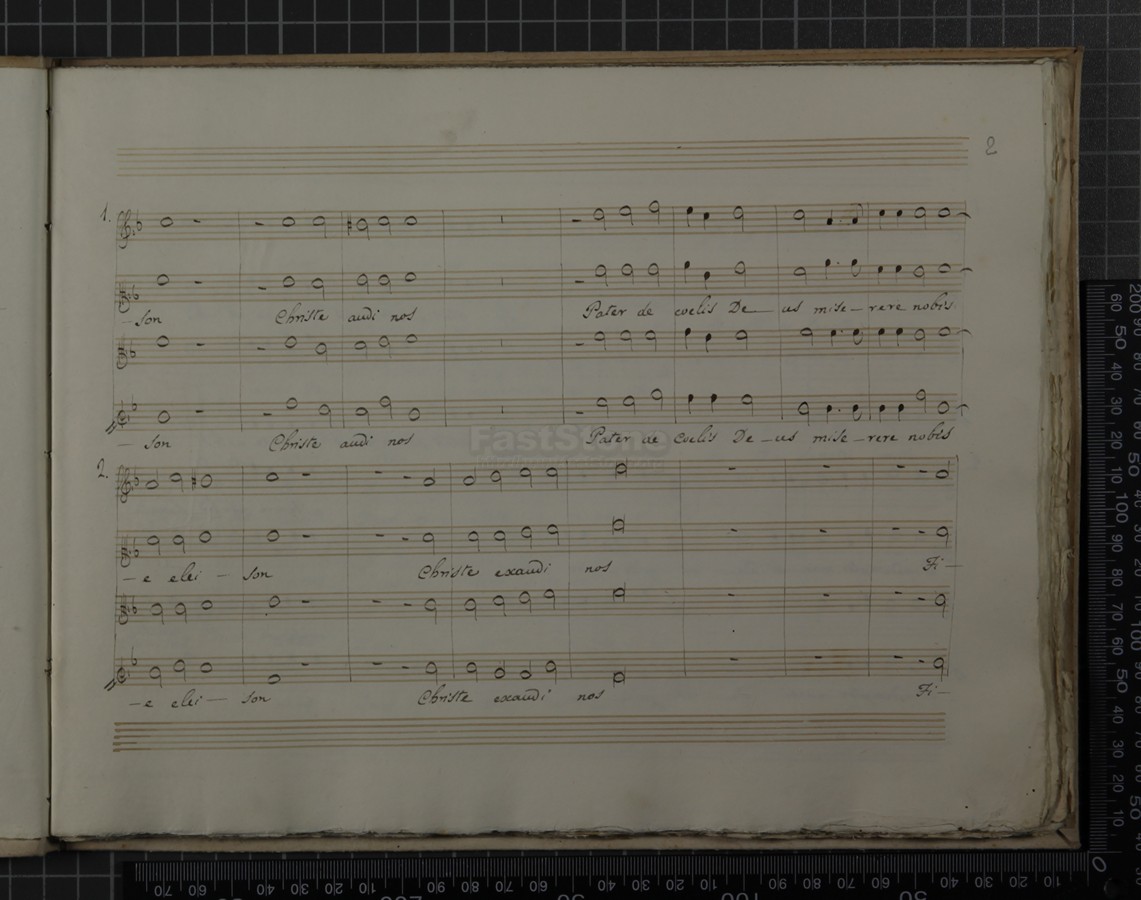 2
1.
– son Christe audi nos Pater de coelis De – us mise – rere nobis
– son Christe audi nos Pater de coelis De – us mise – rere nobis
FastStone
2.
– e elei – son Christe exaudi nos Fi –
– e elei – son Christe exaudi nos Fi –